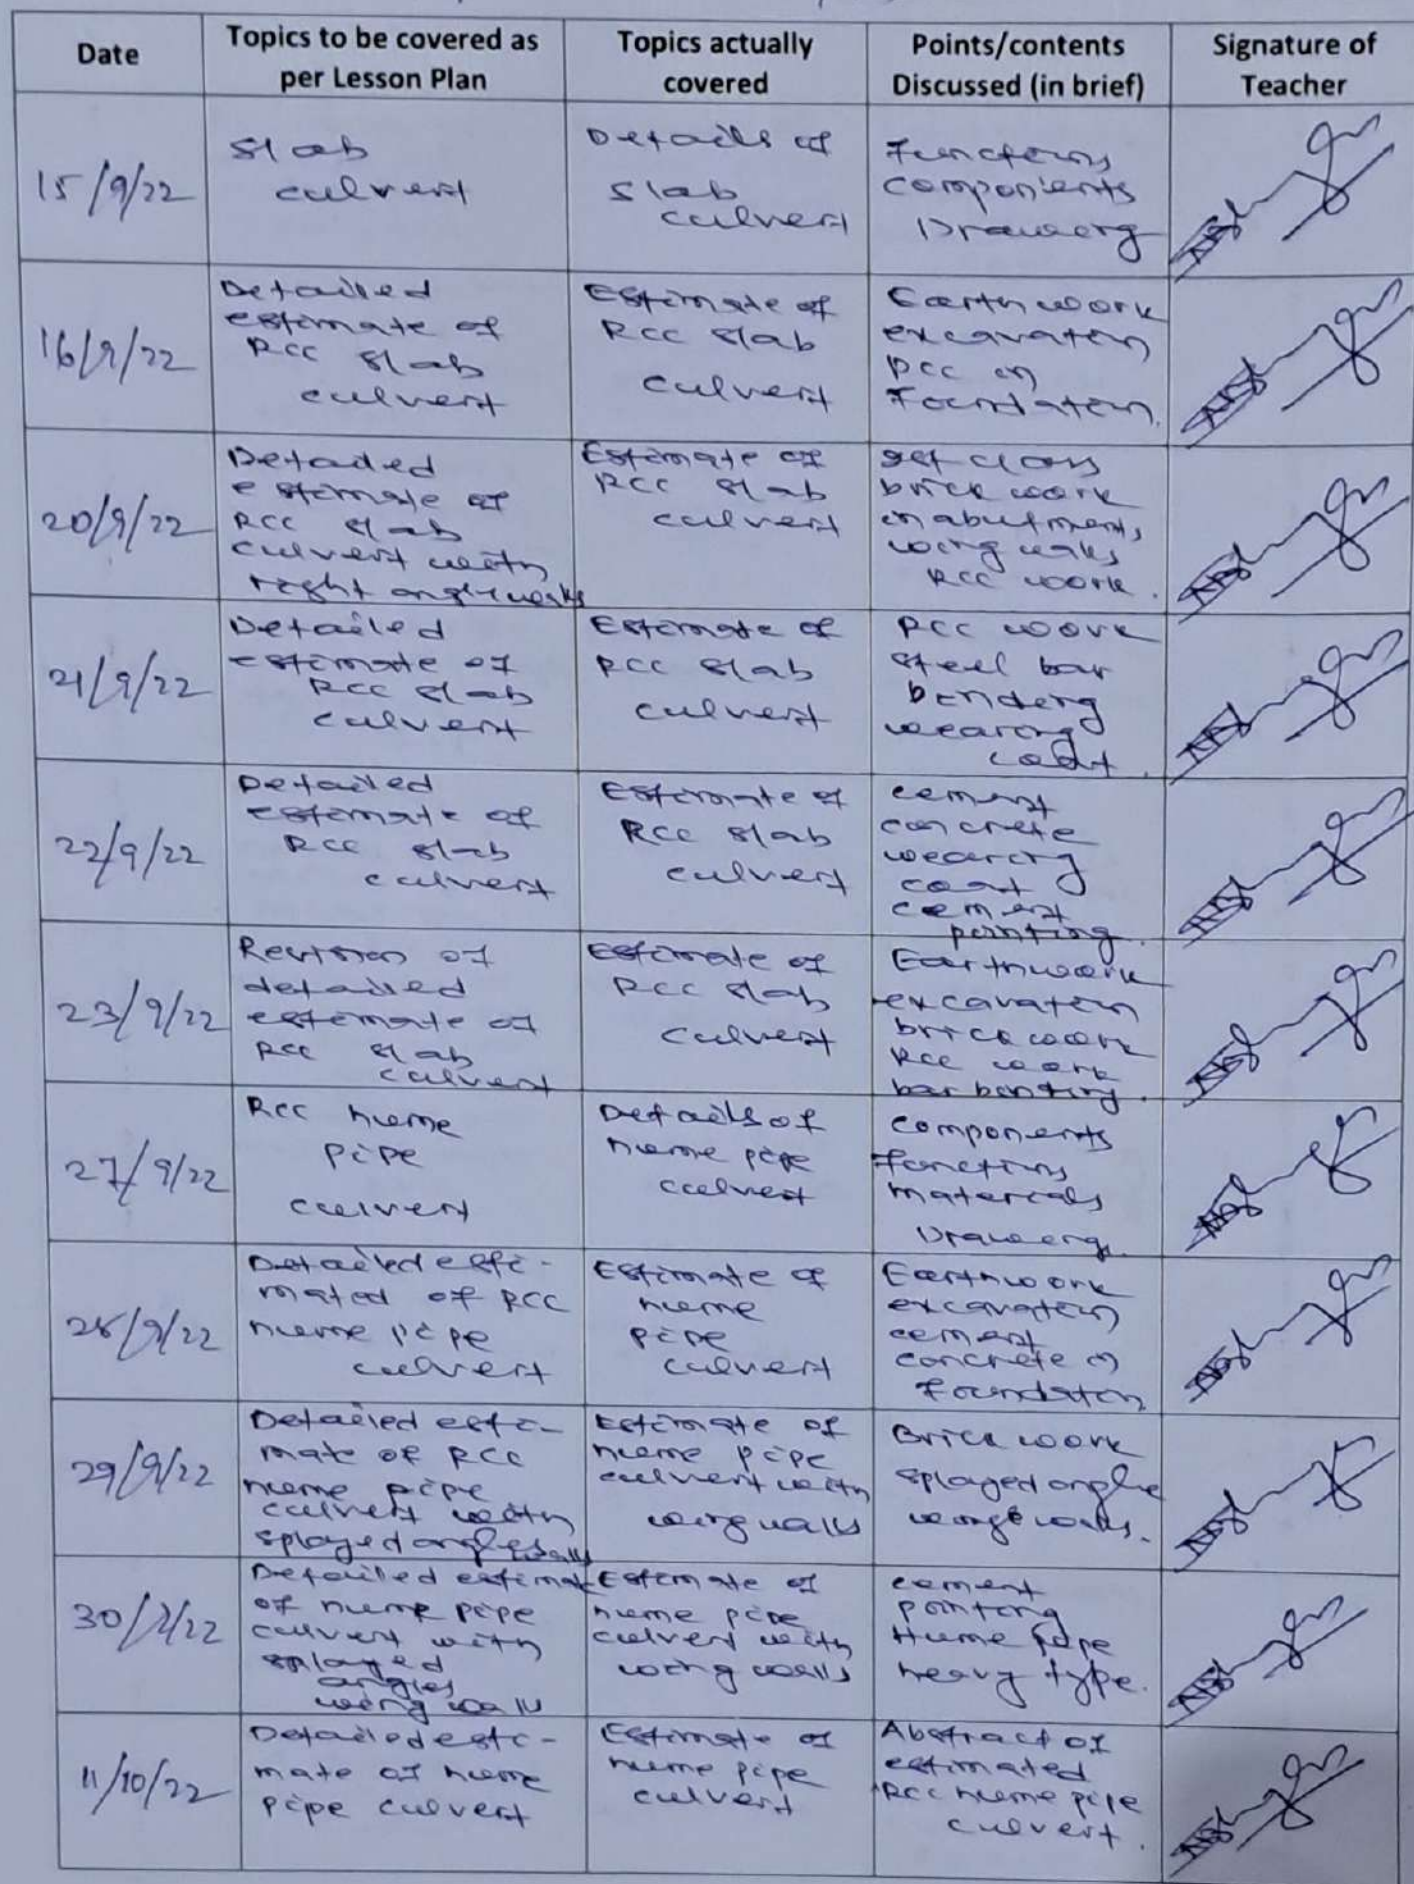 Date
Topics to be covered as
per Lesson Plan
Topics actually
covered
Points/contents
Discussed (in brief)
Signature of
Teacher
15/9/22
Slab
culvert
Details of
slab
culvert
Functions
components
Drawing
16/9/22
Detailed
estimate of
RCC slab
culvert
Estimate of
RCC slab
culvert
Earth work
excavation
PCC in
Foundation.
20/9/22
Detailed
estimate of
RCC slab
culvert with
right angle walls
Estimate of
RCC slab
culvert
class
brick work
in abutment,
wing walls
RCC work.
21/9/22
Detailed
estimate of
RCC slab
culvert
Estimate of
RCC slab
culvert
RCC work
steel bar
bending
wearing
coat.
22/9/22
Detailed
estimate of
RCC slab
culvert
Estimate of
RCC slab
culvert
cement
concrete
wearing
coat
cement
pointing.
23/9/22
Revision of
detailed
estimate of
RCC slab
culvert
Estimate of
RCC slab
culvert
Earthwork
excavation
brick work
RCC work
bar
27/9/22
RCC hume
pipe
culvert
Details of
hume pipe
culvert
components
functions
materials
Drawing.
28/9/22
Detailed esti-
mated of RCC
hume pipe
culvert
Estimate of
hume
pipe
culvert
Earthwork
excavation
cement
concrete in
Foundation
29/9/22
Detailed esti-
mate of RCC
hume pipe
culvert with
splayed angles walls
Estimate of
hume pipe
culvert with
wing walls
Brick work
splayed angle
wing walls.
30/9/22
Detailed estimate
of hume pipe
culvert with
splayed
angles
wing walls
Estimate of
hume pipe
culvert with
wing walls
cement
pointing
Hume pipe
heavy type.
11/10/22
Detailed esti-
mate of hume
pipe culvert
Estimate of
hume pipe
culvert
Abstract of
estimated
RCC hume pipe
culvert.